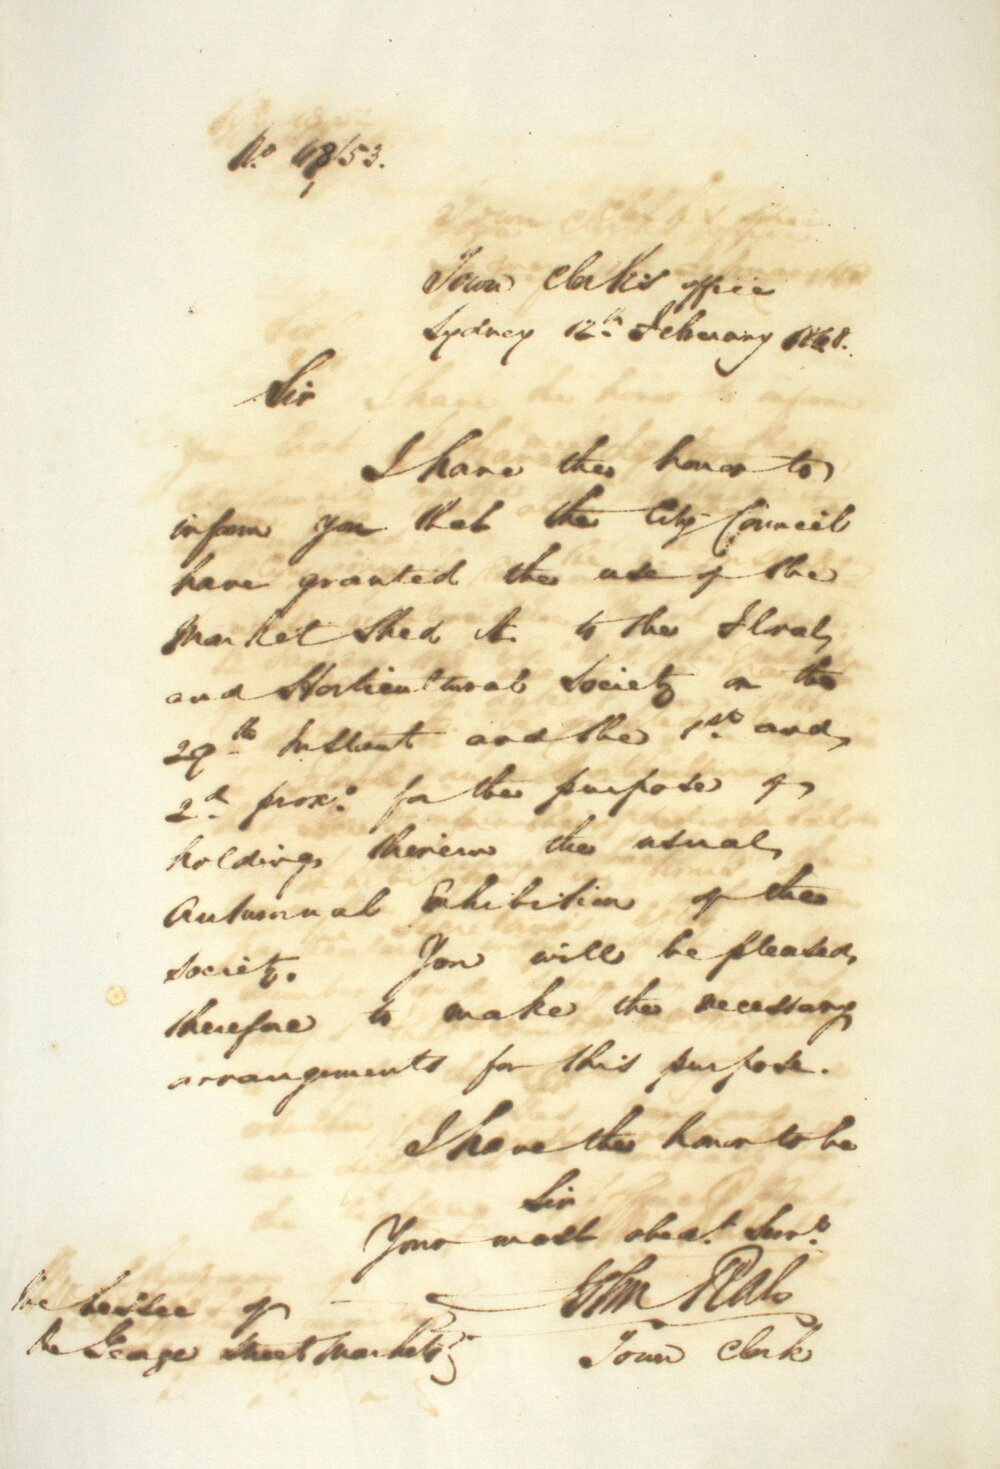 No. 48/53.
Town Clerk's office
Sydney 12th February 1868.
Sir
I have the honor to
inform you that the City Council
have granted the use of the
Market Shed A. to the Floral
and Horticultural Society on the
29th Instant and the 1st and
2d proxo. for the purpose of
holding therein the usual
Autumnal Exhibition of the
society. You will be pleased
therefore to make the necessary
arrangements for this purpose.
I have the honor to be
Sir
Your most obedt. Servt.
The Lessee of
the George Street Markets
John
Town Clerk